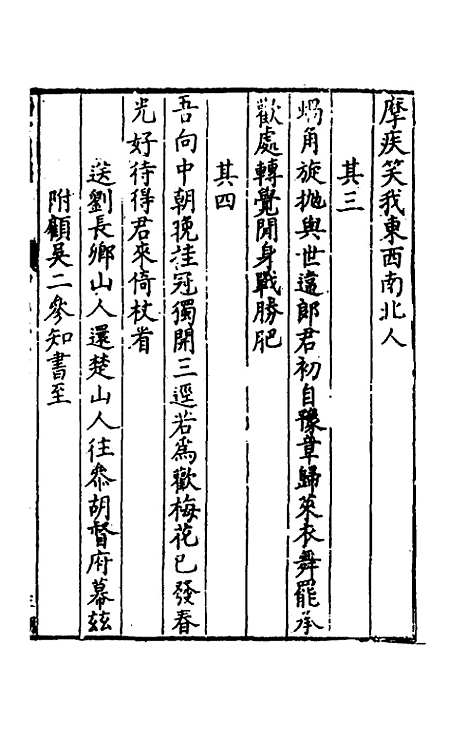 摩疾笑我東西南北人
其三
蝸角旋抛與世違郎君初自豫章歸萊衣舞罷承
歡處轉覺閒身戰勝肥
其四
吾向中朝晚挂冠獨開三逕若爲歡梅花已發春
光好待得君來倚杖看
送劉長鄉山人還楚山人往叅胡督府幕兹
附顧吳二叅知書至